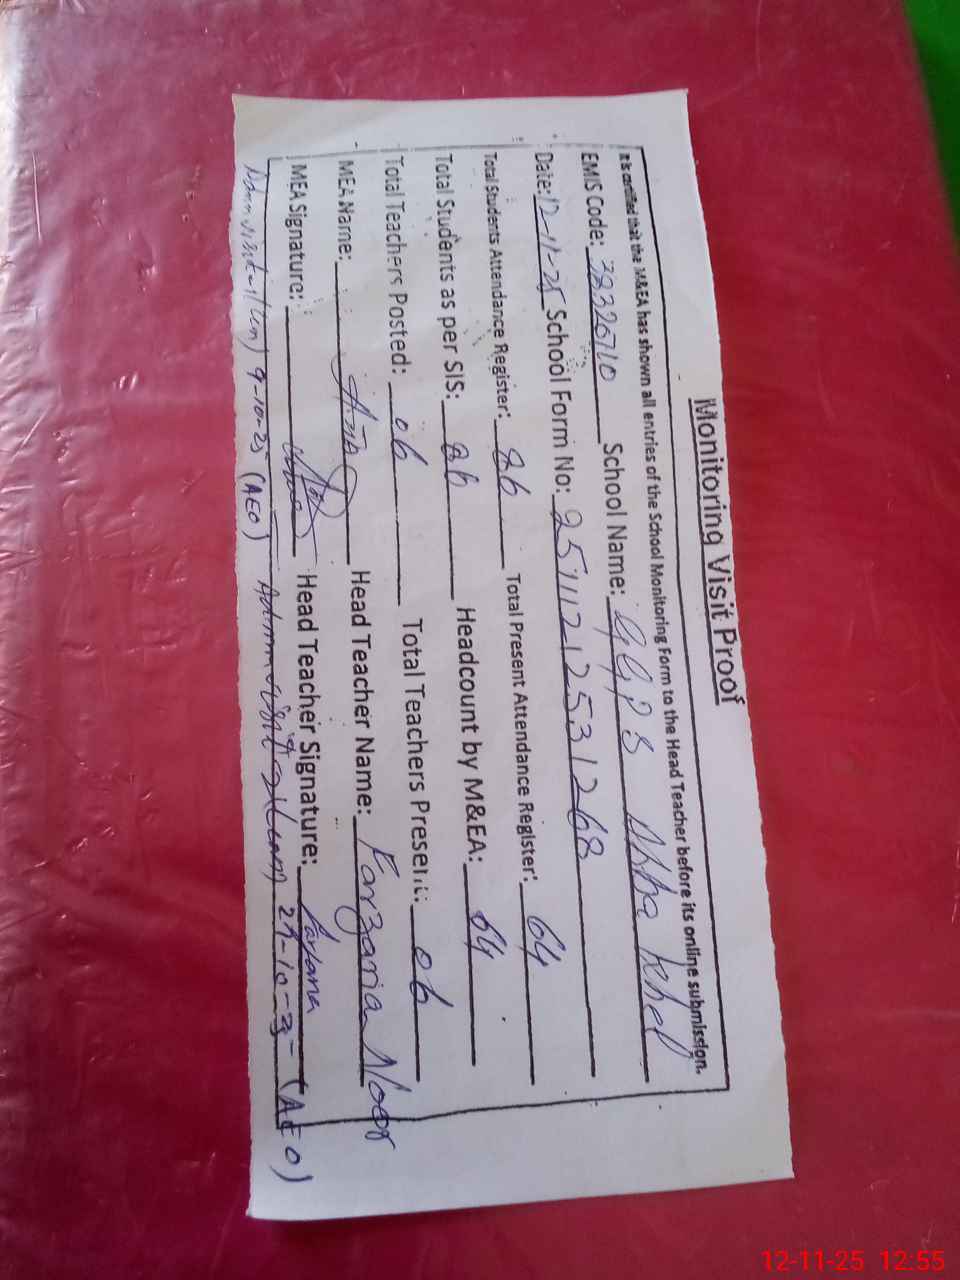 Monitoring Visit Proof
It is certified that the M&EA has shown all entries of the School Monitoring Form to the Head Teacher before its online submission.
EMIS Code: 38320710 School Name: GGPS Abba Khel
Date: 12-11-25 School Form No: 251112-12531268
Total Students Attendance Register: 86 Total Present Attendance Register: 64
Total Students as per SIS: 86 Headcount by M&EA: 64
Total Teachers Posted: 06 Total Teachers Present: 06
MEA Name: Head Teacher Name: Farzana Noor
MEA Signature: Head Teacher Signature: Farzana
Admn visit 9-10-25 (AEO) Admn visit 29-10-25 (AEO)
12-11-25 12:55